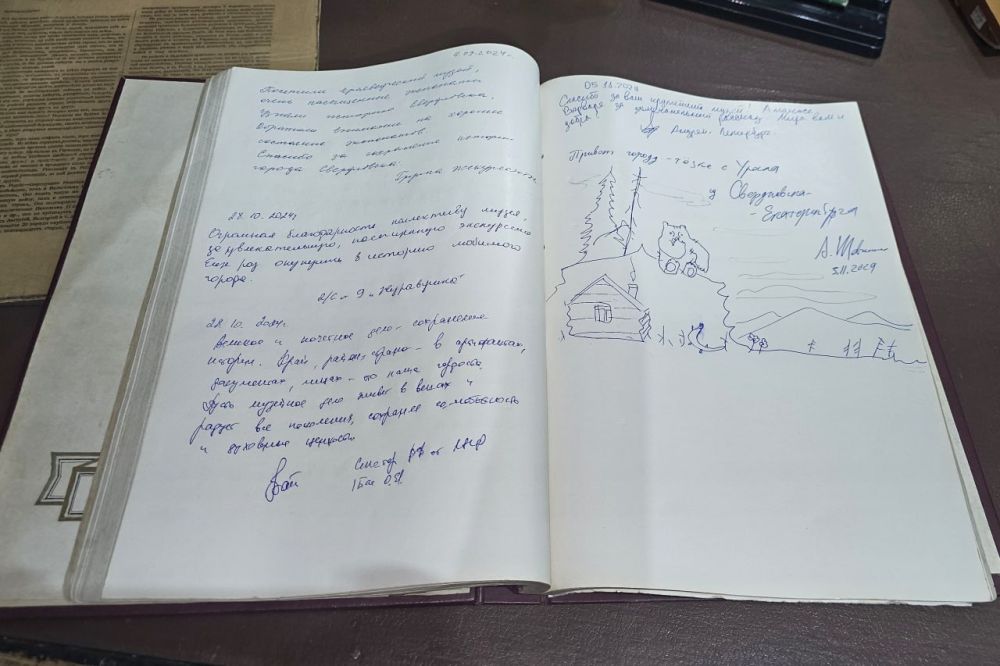 2.09.2024г.
Посетили краеведческий музей,
очень насыщенные экспонаты
Узнали историю Свердловска.
Обратили внимание на хорошее
состояние экспонатов
Спасибо за сохранение истории
города Свердловска.
Группа экскурсантов
28.10.2024г
Огромная благодарность коллективу музея,
за увлекательную, экскурсию
Еще раз окунулись в историю любимого
города.
д/с № 9 "Журавушка"
28.10.2024г.
Великое и почетное дело - сохранение
истории. Край, район, страна - в артефактах,
документах, лицах - это наша гордость.
Пусть музейное дело живет в веках и
радует все поколения, сохраняя самобытность
и духовные ценности
Сенатор РФ от
05.11.2024
Спасибо за ваш музей!
Варваре за рассказ. Мира вам и
добра!
Андрей. Петербург.
Привет городу-тёзке с Урала
из Свердловска-
-Екатеринбурга
5.11.2024